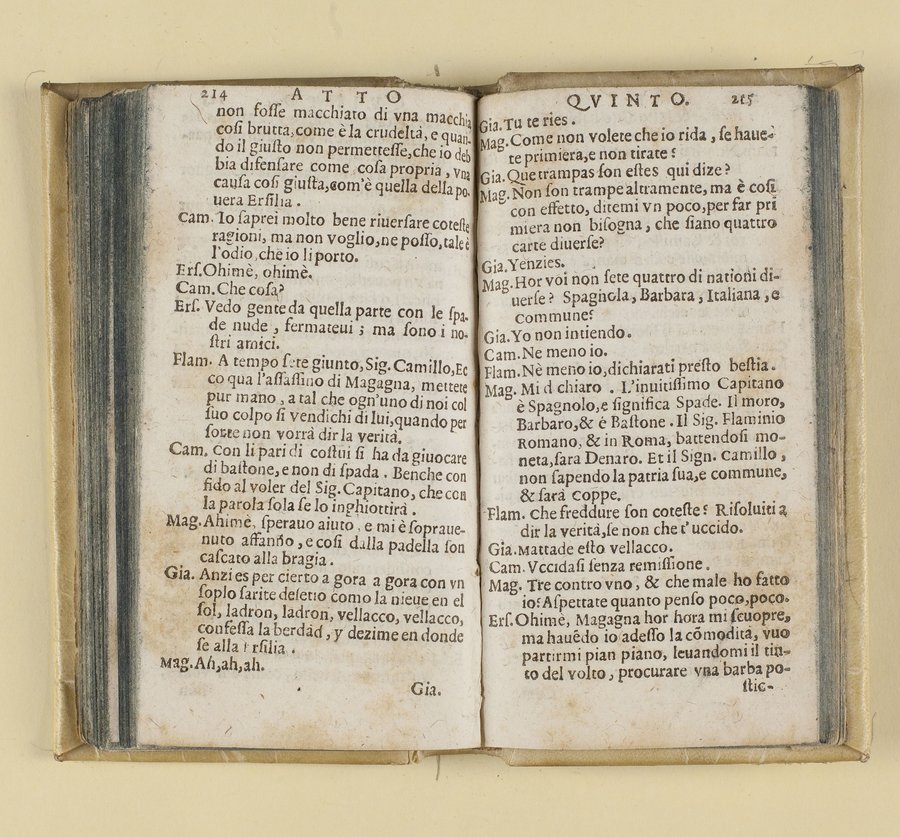 214 ATTO
non fosse macchiato di vna macchia
così brutta, come è la crudeltà, e quan-
do il giusto non permettesse, che io deb
bia difensare come cosa propria, vna
causa così giusta, com'è quella della po-
uera Ersilia.
Cam. Io saprei molto bene riuersare coteste
ragioni, ma non voglio, ne posso, tale è
l'odio, che io li porto.
Ers. Ohimè, ohimè.
Cam. Che cosa?
Ers. Vedo gente da quella parte con le spa-
de nude, fermateui; ma sono i no-
stri amici.
Flam. A tempo sete giunto, Sig. Camillo, Ec
co qua l'assassino di Magagna, mettete
pur mano, a tal che ogn'uno di noi col
suo colpo si vendichi di lui, quando per
sorte non vorrà dir la verità.
Cam. Con li pari di costui si ha da giuocare
di bastone, e non di spada. Benche con
fido al voler del Sig. Capitano, che con
la parola sola se lo inghiottirà.
Mag. Ahimè, sperauo aiuto, e mi è soprave-
nuto affanno, e così dalla padella son
cascato alla bragia.
Gia. Anzi es per cierto a gora a gora con vn
soplo sarite desetio como la nieue en el
sol, ladron, ladron, vellacco, vellacco,
confessa la berdad, y dezime en donde
se alla Ersilia.
Mag. Ah, ah, ah.
Gia.
QVINTO. 215
Gia. Tu te ries.
Mag. Come non volete che io rida, se haue-
te primiera, e non tirate?
Gia. Que trampas son estes qui dize?
Mag. Non son trampe altramente, ma è così
con effetto, ditemi vn poco, per far pri
miera non bisogna, che siano quattro
carte diuerse?
Gia. Yenzies.
Mag. Hor voi non sete quattro di nationi di-
uerse? Spagnola, Barbara, Italiana, e
commune?
Gia. Yo non intiendo.
Cam. Ne meno io.
Flam. Nè meno io, dichiarati presto bestia.
Mag. Mi d chiaro. L'inuitissimo Capitano
è Spagnolo, e significa Spade. Il moro,
Barbaro, & è Bastone. Il Sig. Flaminio
Romano, & in Roma, battendosi mo-
neta, sara Denaro. Et il Sign. Camillo,
non sapendo la patria sua, e commune,
& sarà Coppe.
Flam. Che freddure son coteste? Risoluiti a
dir la verità, se non che t'uccido.
Gia. Mattade esto vellacco.
Cam. Vccidasi senza remissione.
Mag. Tre contro vno, & che male ho fatto
io? Aspettate quanto penso poco, poco.
Ers. Ohimè, Magagna hor hora mi scuopre,
ma hauẽdo io adesso la cõmodità, vuo
partirmi pian piano, leuandomi il tin-
to del volto, procurare vna barba po-
stic-